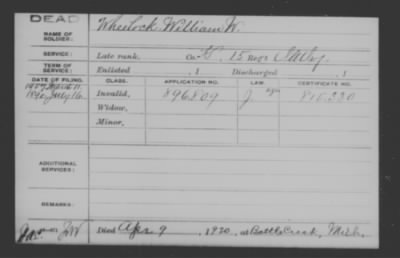 DEAD
NAME OF SOLDIER: Wheelock William W.
SERVICE: Late rank, Co. G, 15 Reg't
TERM OF SERVICE: Enlisted , 1 Discharged , 1
DATE OF FILING. CLASS. APPLICATION NO. LAW. CERTIFICATE NO.
1890 July 16 Invalid, 896809 J. 815.220
Widow,
Minor,
ADDITIONAL SERVICES:
REMARKS:
Died Apr 9, 1920, at Battle Creek, Mich.